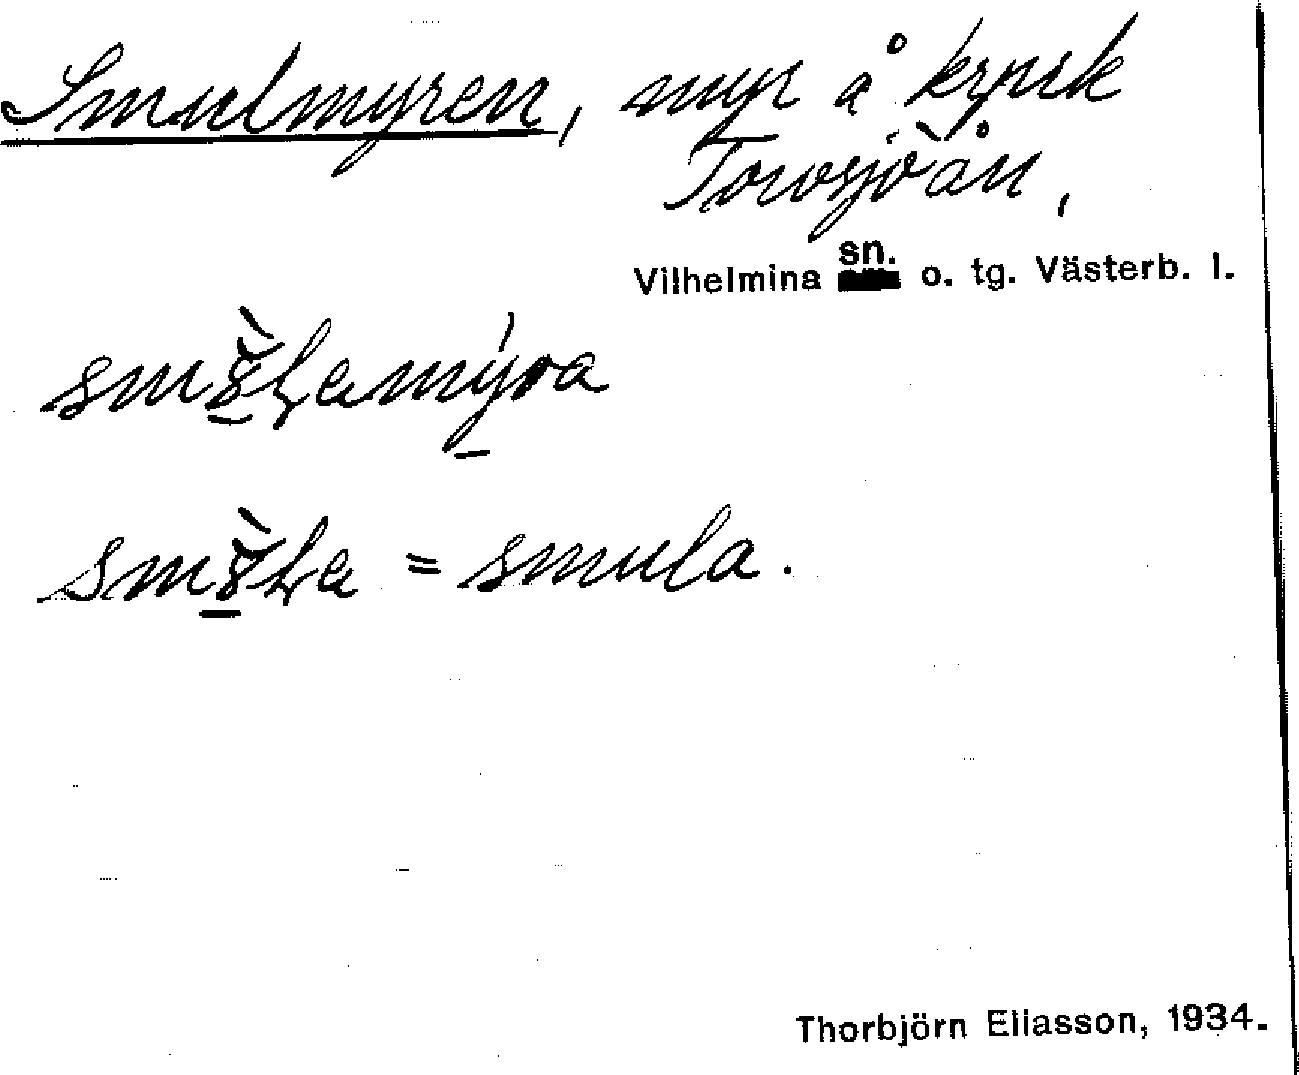 Smulmyren, myr å kynk
Torvsjöån,
Vilhelmina sn. o. tg. Västerb. l.
= smula.
Thorbjörn Eliasson, 1934.